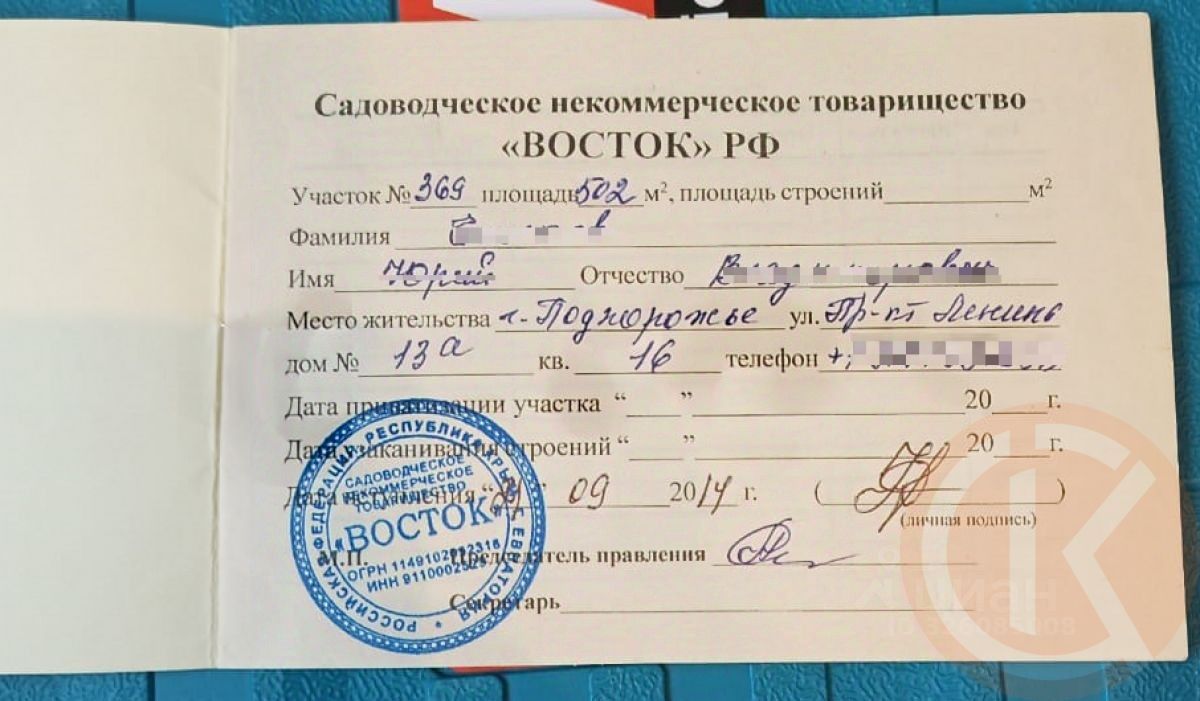 Садоводческое некоммерческое товарищество
«ВОСТОК» РФ
Участок № 369 площадь 502 м², площадь строений м²
Фамилия
Имя Юрий Отчество
Место жительства г. Подпорожье ул. Пр-кт Ленина
дом № 13а кв. 16 телефон
Дата приватизации участка “ ” 20 г.
Дата узаканивания строений “ ” 20 г.
Дата вступления “ ” 09 2014 г. ( )
(личная подпись)
М.П. Председатель правления
Секретарь
РОССИЙСКАЯ ФЕДЕРАЦИЯ РЕСПУБЛИКА КРЫМ Г. ЕВПАТОРИЯ
САДОВОДЧЕСКОЕ
НЕКОММЕРЧЕСКОЕ
ТОВАРИЩЕСТВО
«ВОСТОК»
ОГРН
ИНН
циан